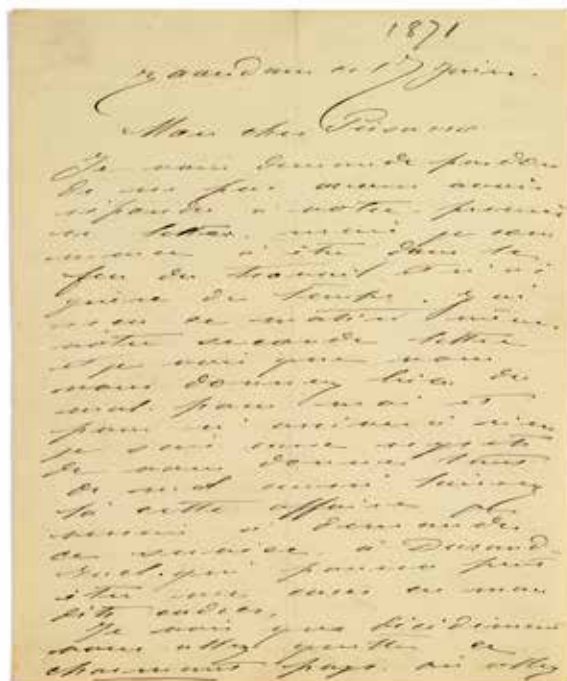 1871
Zaandam ce 17 Juin.
Mon cher Pissarro
Je vous demande pardon
de ne pas encore avoir
répondu à votre premiè
re lettre, mais je com
mence à être dans le
feu du travail et n'ai
guère de temps. J'ai
reçu ce matin même
votre seconde lettre
et je vois que vous
vous donnez bien du
mal pour moi et
pour n'arriver à rien
je suis
de vous donner tant
de mal aussi laissez
là cette affaire
à demander
ce service à Durand-
Ruel qui pourra peut
être me ces mau
dits cadres.
Je vois que décidément
vous allez quitter ce
charmant pays où allez